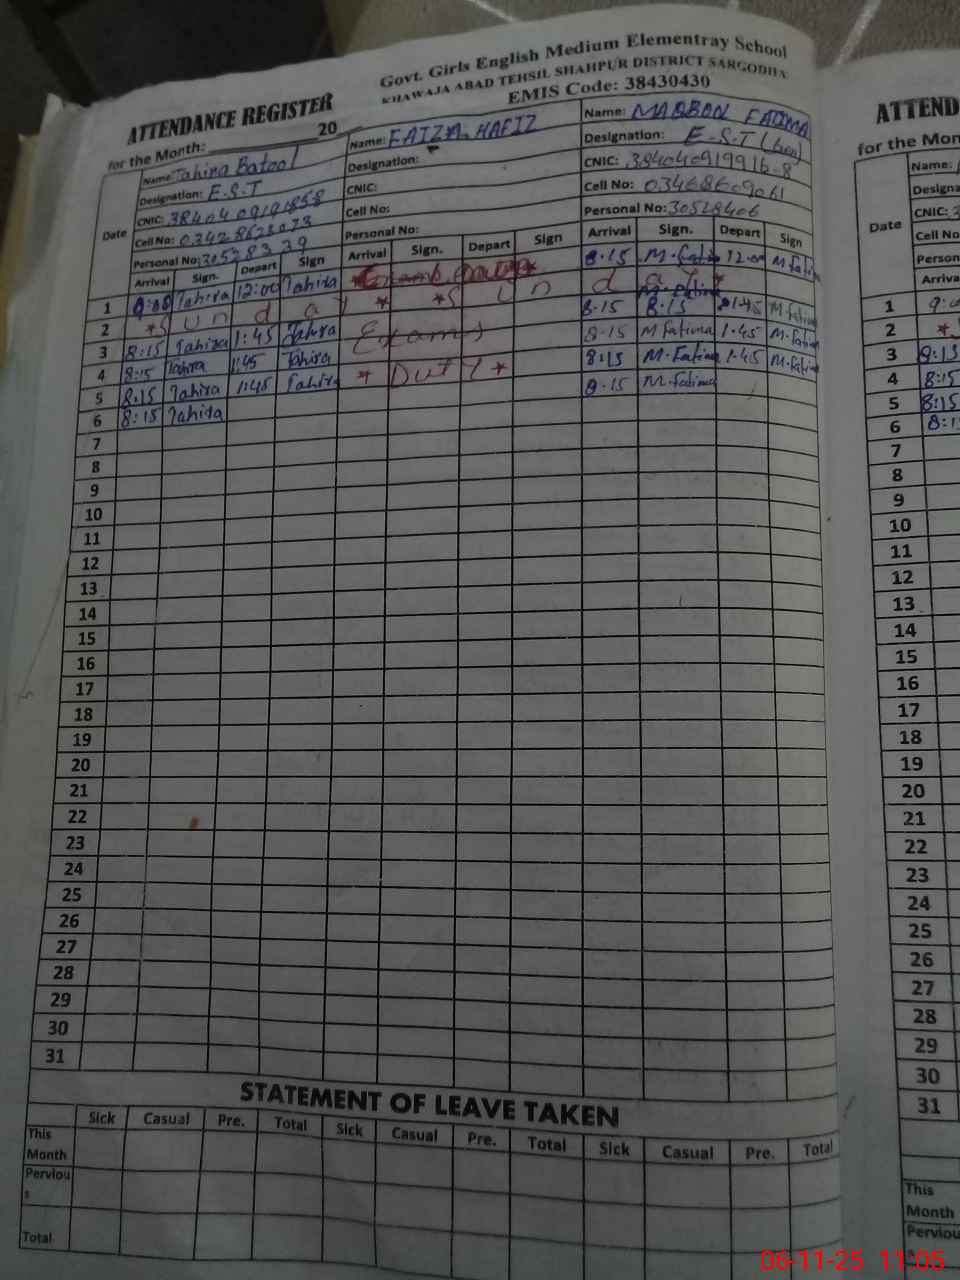 Govt. Girls English Medium Elementray School
KHAWAJA ABAD TEHSIL SHAHPUR DISTRICT SARGODHA
EMIS Code: 38430430
ATTENDANCE REGISTER
for the Month: 20
Date
Name: Tahira Batool
Designation: E.S.T
CNIC: 3840409191858
Cell No: 03428623073
Personal No: 30528339
Name: FAIZA HAFIZ
Designation:
CNIC:
Cell No:
Personal No:
Name: MAQBON FATIMA
Designation: E-S-T
CNIC: 384040919916-8
Cell No: 03468609061
Personal No: 30528406
Arrival Sign. Depart Sign Arrival Sign. Depart Sign Arrival Sign. Depart Sign
1 Tahira 12:00 Tahira 8.15 M.Fatima 12.00 M Fatima
2 *S u n d a y * *S u n d a y *
3 8:15 Tahira 1:45 Tahira Exams 8.15 8.15 1.45 M Fatima
4 8:15 Tahira 1:45 Tahira 8.15 M Fatima 1.45 M.Fatima
5 8:15 Tahira 1:45 Tahira * Duty * 8:15 M.Fatima 1.45 M.Fatima
6 8:15 Tahira 8.15 M.Fatima
7
8
9
10
11
12
13
14
15
16
17
18
19
20
21
22
23
24
25
26
27
28
29
30
31
STATEMENT OF LEAVE TAKEN
Sick Casual Pre. Total Sick Casual Pre. Total Sick Casual Pre. Total
This
Month
Perviou
s
Total
ATTEND
for the Mon
Date
Name:
Designa
CNIC: 3
Cell No
Person
Arriva
1
2 *
3
4 8:15
5 8:15
6
7
8
9
10
11
12
13
14
15
16
17
18
19
20
21
22
23
24
25
26
27
28
29
30
31
This
Month
Perviou
06-11-25 11:05